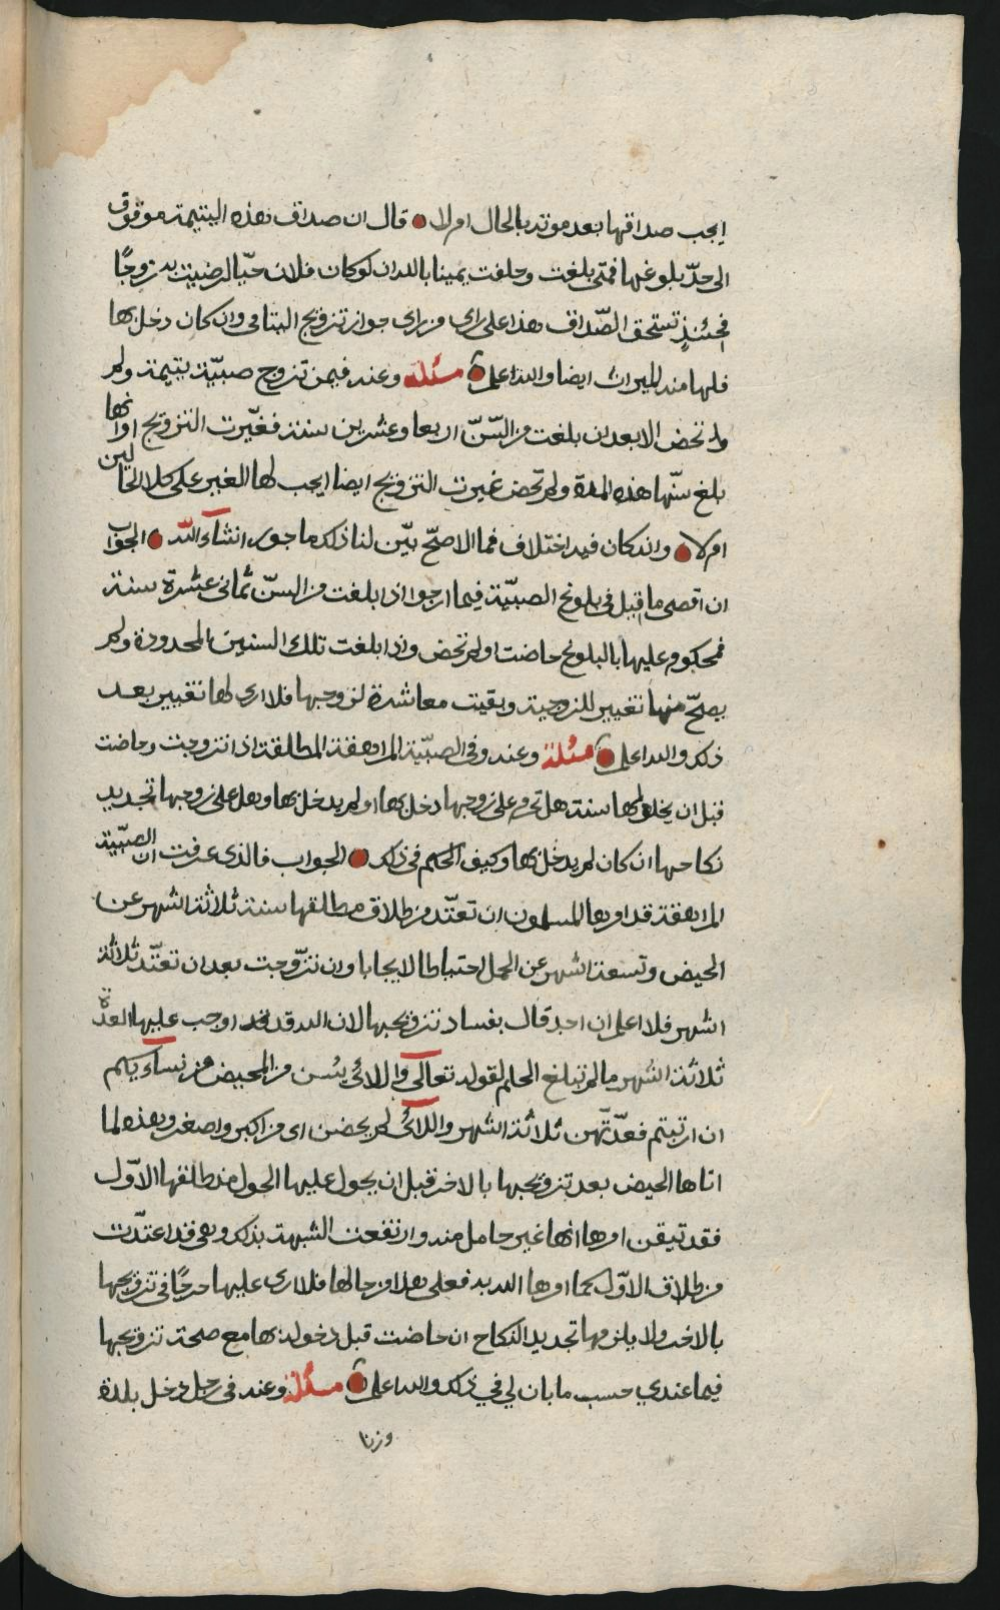 ايجب صداقها بعد موته بالحال ام لا • قال ان صداق هذه اليتيمة موقوف
الى حدّ بلوغها فمتى بلغت وحلفت يمينا بالله ان لو كان فلان حيّا لرضيت به زوجًا
فحينئذٍ تستحق الصّداق هذا على راى من راى جواز تزويج اليتامى وان كان دخل بها
فلها منه الميراث ايضا والله اعلم • مسئلة وعنه فيمن تزوج صبيّة يتيمة ولم
ولم تحض الا بعد ان بلغت من السّنّ اربعا وعشرين سنة فغيّرت التزويج او انها
بلغ سنّها هذه المدة ولم تحض غيرت التزويج ايضا ايجب لها الغير على كلا الحالين
ام لا • وان كان فيه اختلاف فما الاصحّ بيّن لنا ذلك ماجورا انشاء الله • الجواب
ان اقصى ما قيل فى بلوغ الصبيّة فيما ارجوا اذا بلغت من السنّ ثمانى عشرة سنة
فمحكوم عليها بالبلوغ حاضت او لم تحض واذا بلغت تلك السنين المحدودة ولم
يصحّ منها تغيير للزوجية وبقيت معاشرة لزوجها فلا ارى لها تغيير بعد
ذلك والله اعلم • مسئلة وعنه وفى الصبيّة المراهقة المطلقة اذا تزوجت وحاضت
قبل ان يخلو لها سنة هل تحرم على زوجها دخل بها او لم يدخل بها وهل على زوجها تجديد
نكاحها ان كان لم يدخل بها وكيف الحكم فى ذلك • الجواب فالذى عرفت ان الصبيّة
المراهقة قد امرها المسلمون ان تعتّد من طلاق مطلقها سنة ثلاثة اشهر عن
الحيض وتسعة اشهر عن الحمل احتياطا لا يجابا وان تزّوجت بعد ان تعتّد ثلاثة
اشهر فلا اعلم ان احد قال بفساد تزويجها لان الله قد اوجب عليها العدّة
ثلاثة اشهر ما لم تبلغ الحلم لقوله تعالى واللائى يئسن من المحيض من نساءكم
ان ارتبتم فعدّتهّن ثلاثة اشهر واللائى لم يحضن اى من اكبر واصغر وهذه لما
اتاها الحيض بعد تزويجها بالاخر قبل ان يحول عليها الحول منذ طلقها الاوّل
فقد تيقن امرها انها غير حامل منه وارتفعت الشبهة بذلك وهى قد اعتدّت
من طلاق الاوّل كما امرها الله به فعلى هذا من حالها فلا ارى عليها حرجًا فى تزويجها
بالاخر ولا يلزمها تجديد النكاح ان حاضت قبل دخوله بها مع صحة تزويجها
فيما عندي حسب ما بان لي في ذلك والله اعلم • مسئلة وعنه فى رجل دخل بلدة
وزنا